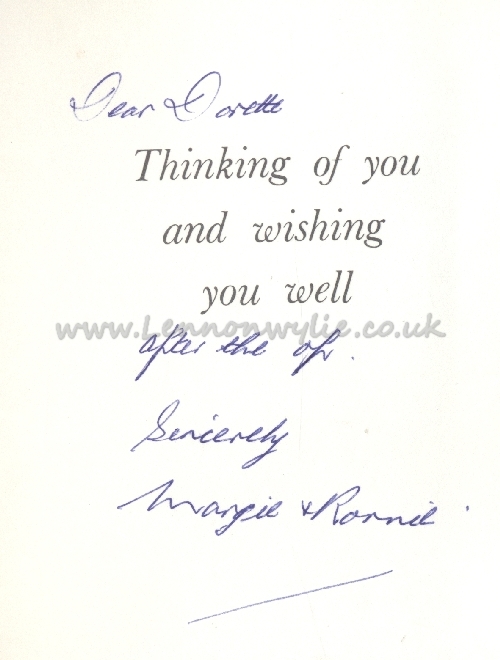 Dear Dorette
Thinking of you
and wishing
you well
www.Lennonwylie.co.uk
after the op.
Sincerely
Margie & Ronnie.